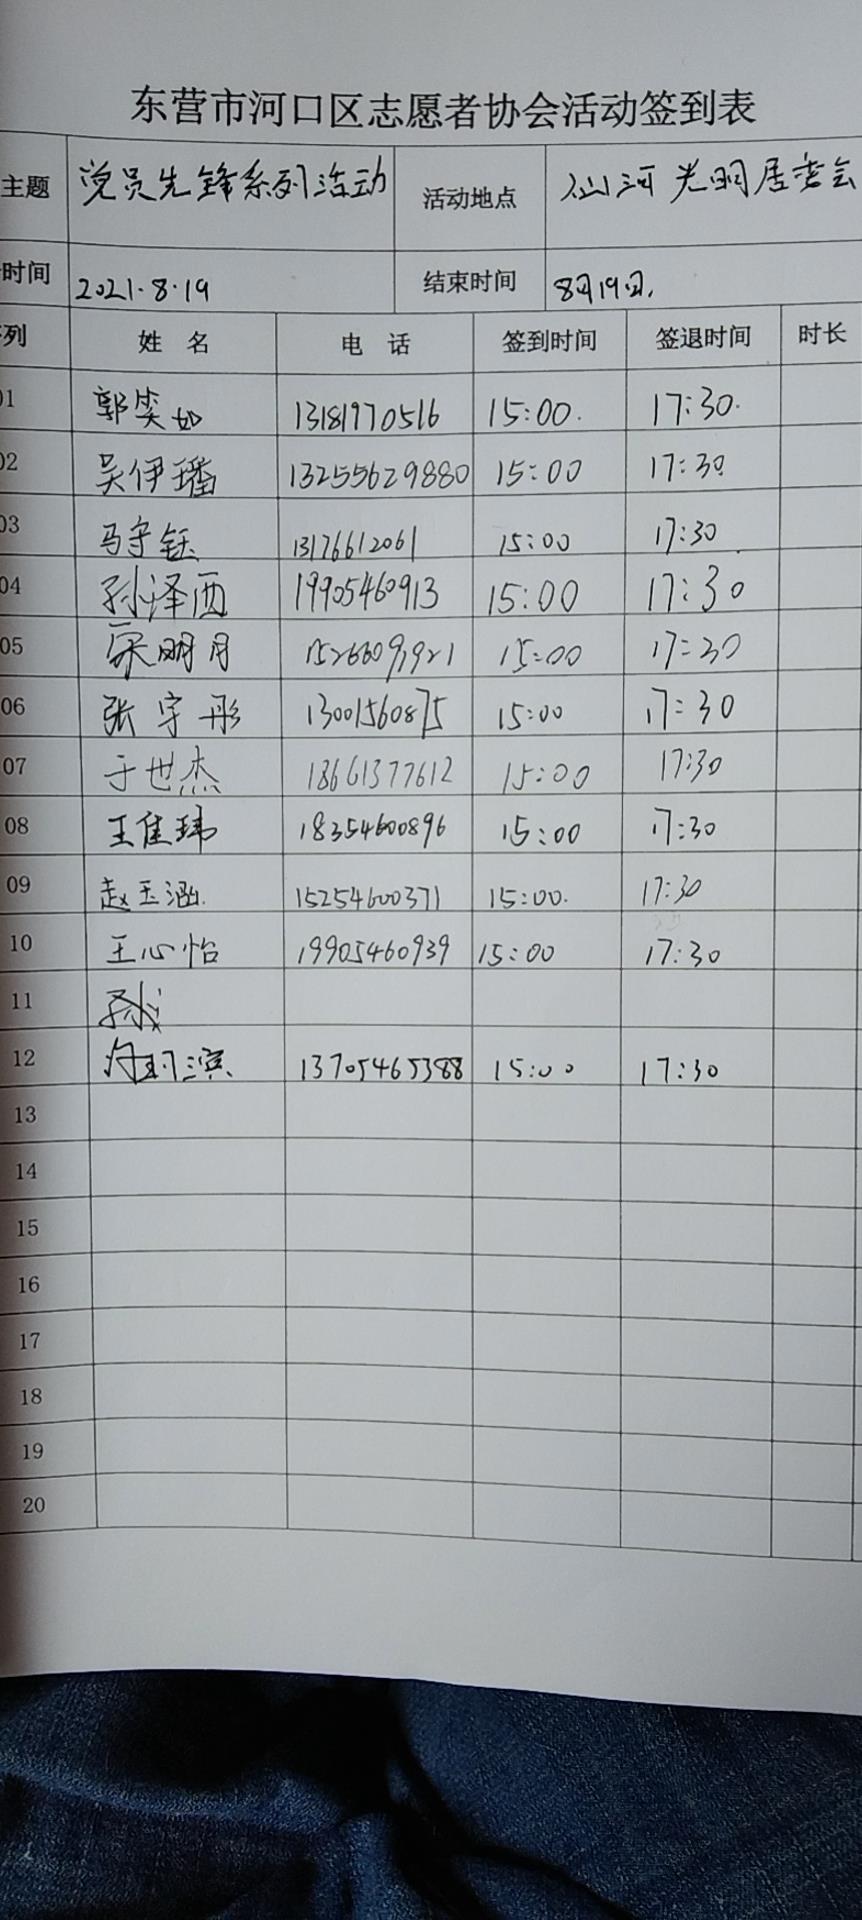 东营市河口区志愿者协会活动签到表
主题 党员先锋系列活动 活动地点 仙河光明居委会
时间 2021.8.19 结束时间 8月19日.
列 姓名 电话 签到时间 签退时间 时长
01 郭奕如 13181970516 15:00. 17:30.
02 吴伊璠 13255629880 15:00 17:30
03 马守钰 13176612061 15:00 17:30
04 孙泽西 19905460913 15:00 17:30
05 宋明月 15266091921 15:00 17:30
06 张宇彤 13001560875 15:00 17:30
07 于世杰 18661377612 15:00 17:30
08 王隹玮 18354600896 15:00 17:30
09 赵玉涵 15254600371 15:00. 17:30
10 王心怡 19905460939 15:00 17:30
11
12 13705465388 15:00 17:30
13
14
15
16
17
18
19
20